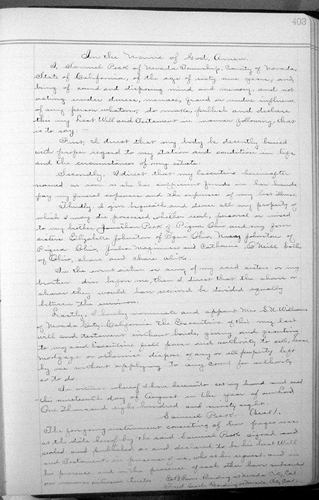 403
In the Name of God, Amen.
I, Samuel Post of Nevada Township, County of Nevada,
State of California, of the age of sixty nine years, and
being of sound and disposing mind and memory, and not
acting under duress, menace, fraud or undue influence
of any person whatever, do make, publish and declare
this my Last Will and Testament in manner following, that
is to say
First, I direct that my body be decently buried
with proper regard to my station and condition in life
and the circumstances of my estate.
Secondly, I direct that my Executors hereinafter
named as soon as has sufficient funds in hands
pay my funeral expenses and the expenses of my last illness.
Thirdly, I give bequeath and devise all my property of
which I may die possessed whether real, personal or mixed
to my brother Jonathan Post of Ohio and my
sisters Elizabeth Johnston of Ohio,
Ohio, Julia and Catharine both
of Ohio, share and share alike.
In the event either or any of my said sisters or my
brother die before me, then I direct that the share or
shares they would have received be divided equally
between the survivors.
Lastly, I hereby nominate and appoint Mrs. Williams
of Nevada City California, the Executrix of this my last
will and testament without bonds, giving and granting
to my said Executrix full power and authority to sell, lease,
mortgage or otherwise dispose of any or all property left
by me without applying to any Court for authority
so to do.
In witness whereof I have hereunto set my hand and seal
the nineteenth day of August in the year of our Lord
One Thousand eight hundred and ninety eight.
Samuel Post (Seal).
The foregoing instrument consisting of two pages was
at the date hereof by the said Samuel Post signed and
sealed and published as and declared to be his last Will
and Testament in presence of us, who at his request and in
his presence and in the presence of each other have subscribed
our names as witnesses thereto. Residing at Nevada City, Cal.
Residing at Nevada City, Cal.